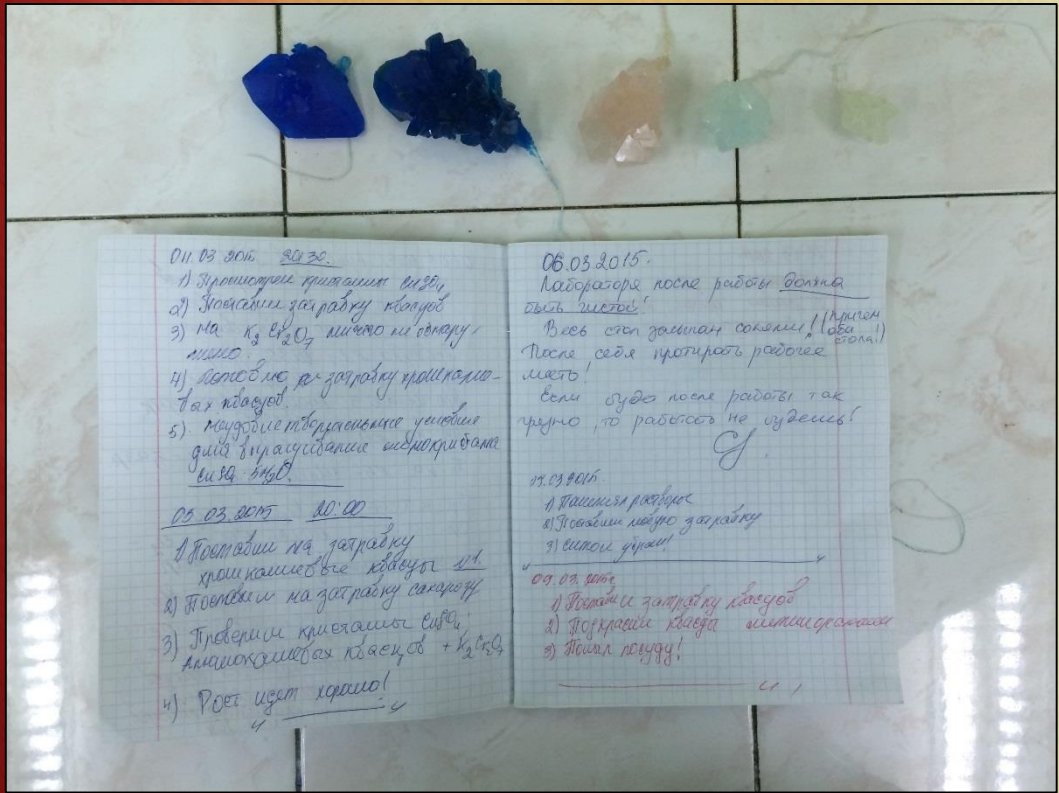 04.03.2015 20:30.
1) Просмотрели кристаллы CuSO4
2) Поставили затравку квасцов
3) На K2Cr2O7 ничего не обнару-
жено.
4) Готовлю затравку хромкалие-
вых квасцов.
5) Неудовлетворительные условия
для выращивания монокристалла
CuSO4·5H2O.
05.03.2015 20:00
1) Поставили на затравку
хромкалиевые квасцы
2) Поставили на затравку сахарозу
3) Проверили кристаллы CuSO4,
алюмокалиевых квасцов + K2Cr2O7
4) Рост идет хорошо!
06.03.2015.
Лаборатория после работы должна
быть чистой!
Весь стол засыпан солями! (причем
оба
стола!)
После себя протирать рабочее
место!
Если буде после работы так
грязно, то работать не будешь!
03.2015
1) растворы
2) Поставили новую затравку
3) убрали!
09.03.2015
1) Поставили затравку квасцов
2) Подкрасили квасцы
3) Помыл посуду!